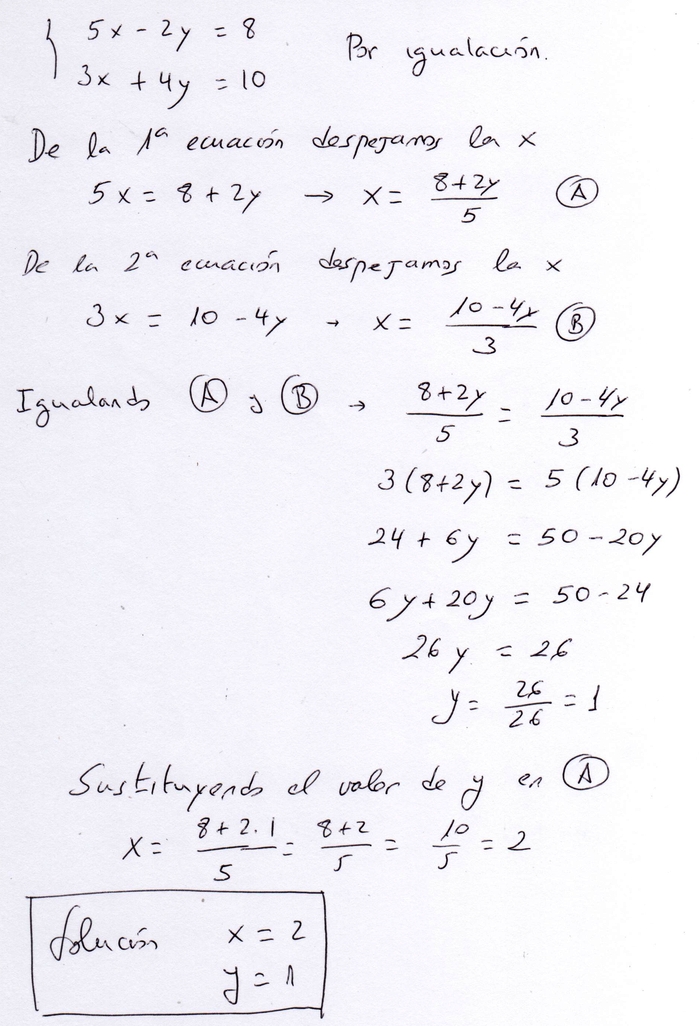 { 5x - 2y = 8
3x + 4y = 10
Por igualación.
De la 1ª ecuación despejamos la x
5x = 8 + 2y → x = (8+2y)/5 Ⓐ
De la 2ª ecuación despejamos la x
3x = 10 - 4y → x = (10-4y)/3 Ⓑ
Igualando Ⓐ y Ⓑ → (8+2y)/5 = (10-4y)/3
3(8+2y) = 5(10-4y)
24 + 6y = 50 - 20y
6y + 20y = 50 - 24
26y = 26
y = 26/26 = 1
Sustituyendo el valor de y en Ⓐ
x = (8+2·1)/5 = (8+2)/5 = 10/5 = 2
Solución x = 2
y = 1